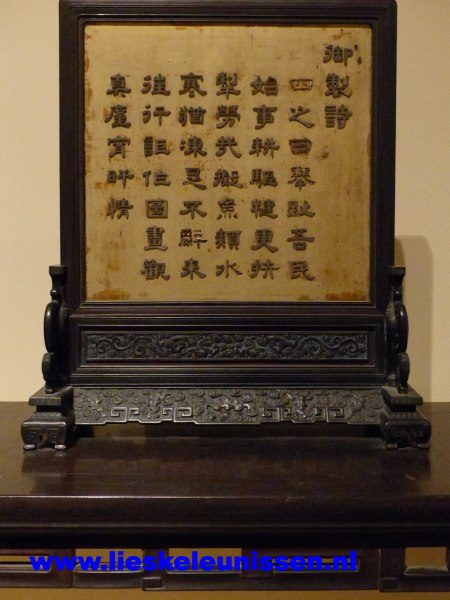 御製詩
四之日舉趾吾民
始事耕驅犍更扶
犂勞哉擬魚頳水
寒猶凍忍不辭來
往行詎作圖畫觀
真廑宵旰情
www.lieskeleunissen.nl